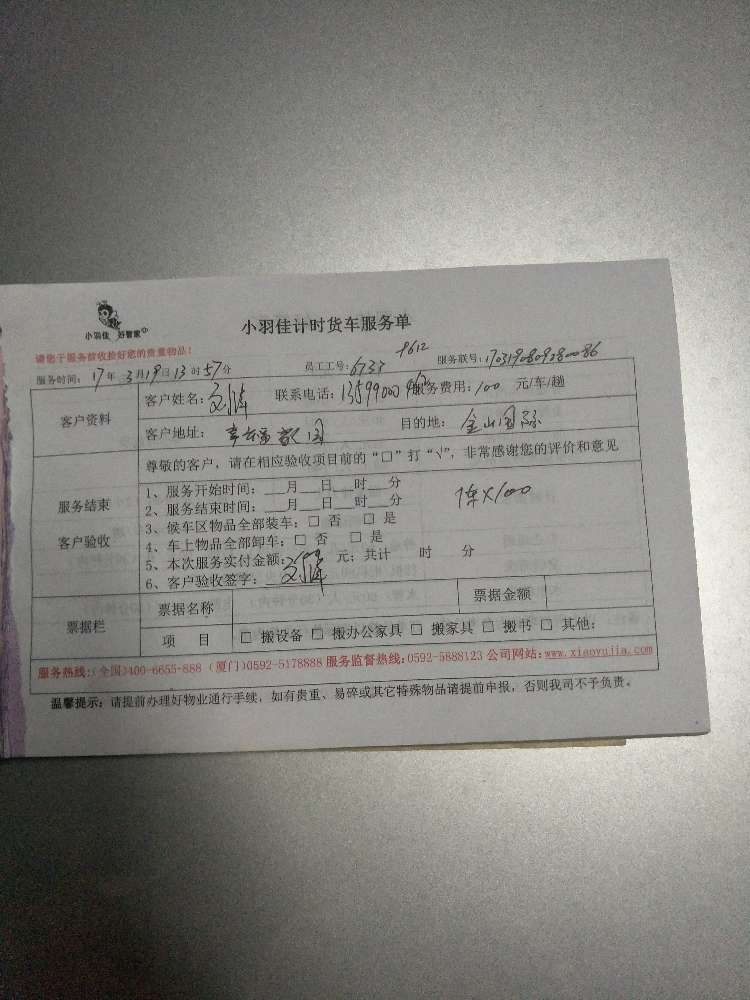 小羽佳 好管家
小羽佳计时货车服务单
请您于服务前收拾好您的贵重物品!
服务时间: 17年 3月19日 13时57分 员工工号: 6733 9612 服务联号: 1703190809280086
客户资料
客户姓名: 联系电话: 13599000 服务费用: 100 元/车/趟
客户地址: 目的地: 金山国际
尊敬的客户,请在相应验收项目前的“□”打“√”,非常感谢您的评价和意见
服务结束
客户验收
1、服务开始时间: 月 日 时 分
2、服务结束时间: 月 日 时 分
3、候车区物品全部装车: □ 否 □ 是
4、车上物品全部卸车: □ 否 □ 是
5、本次服务实付金额: 元; 共计 时 分
6、客户验收签字:
1车X100
票据栏
票据名称 票据金额
项 目 □ 搬设备 □ 搬办公家具 □ 搬家具 □ 搬书 □ 其他:
服务热线:(全国)400-6655-888 (厦门)0592-5178888 服务监督热线:0592-5888123 公司网站:www.xiaoyujia.com
温馨提示: 请提前办理好物业通行手续,如有贵重、易碎或其它特殊物品请提前申报,否则我司不予负责。